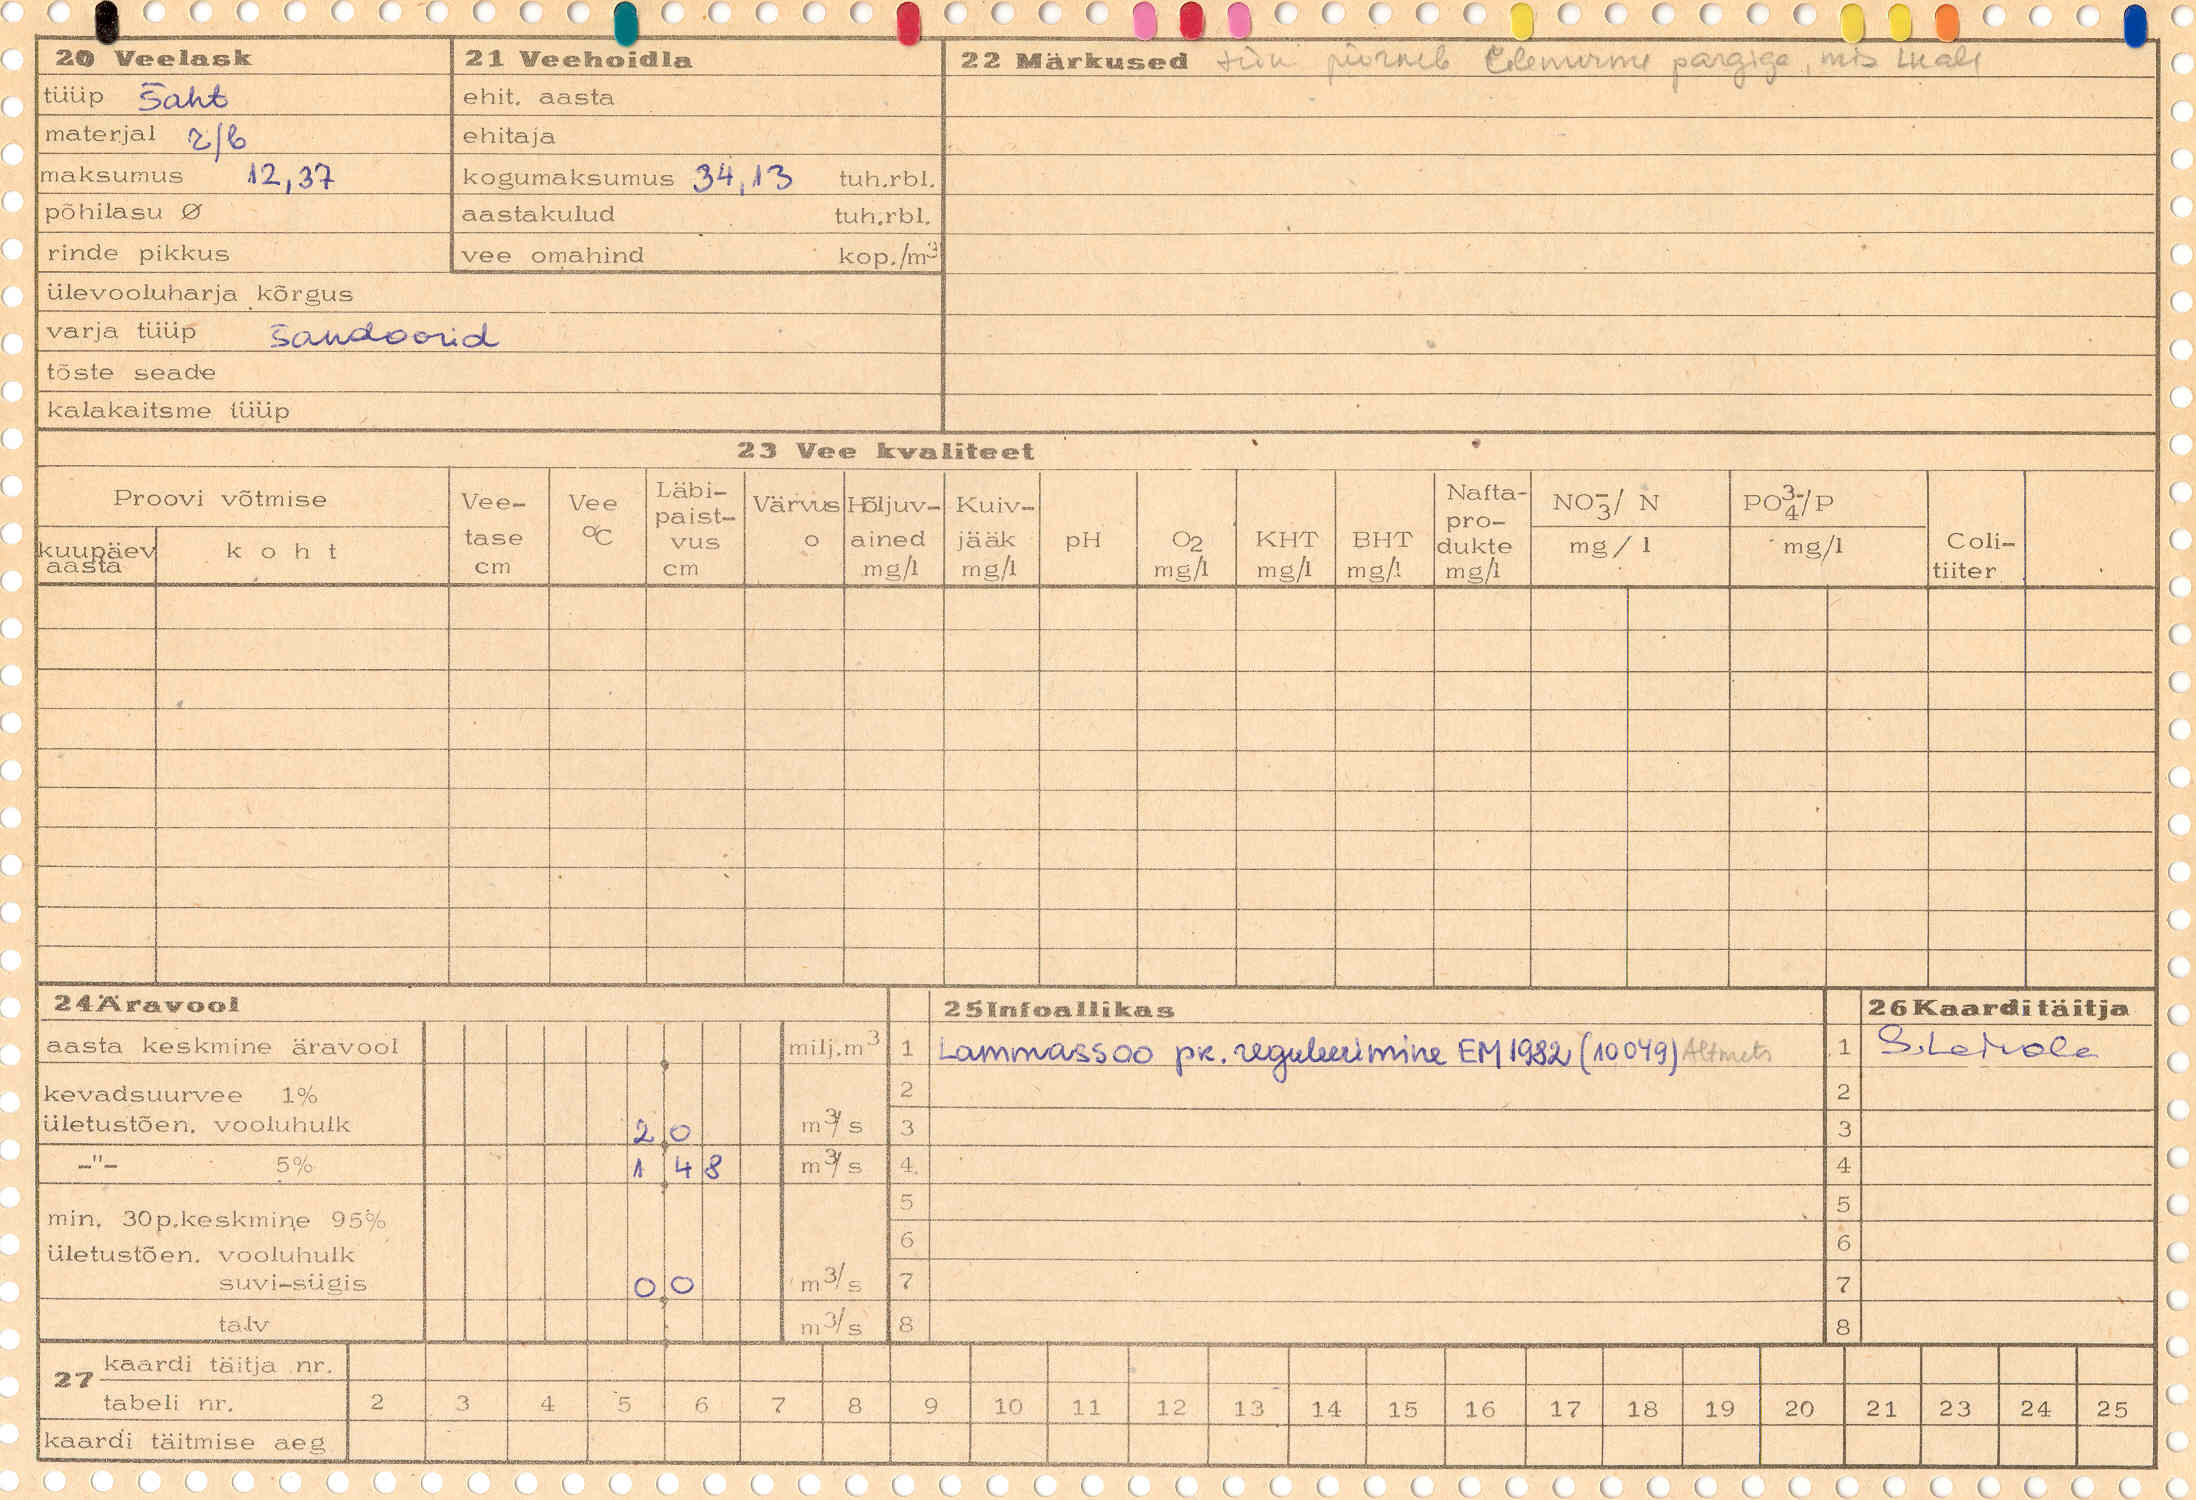 20 Veelask
tüüp šaht
materjal r/b
maksumus 12,37
põhilasu Ø
rinde pikkus
ülevooluharja kõrgus
varja tüüp šandoorid
tõste seade
kalakaitsme tüüp
21 Veehoidla
ehit. aasta
ehitaja
kogumaksumus 34,13 tuh.rbl.
aastakulud tuh.rbl.
vee omahind kop./m³
22 Märkused piirneb Ülenurme pargiga, mis
23 Vee kvaliteet
Proovi võtmise
kuupäev aasta
koht
Vee-tase cm
Vee °C
Läbi-paist-vus cm
Värvus o
Hõljuv-ained mg/l
Kuiv-jääk mg/l
pH
O₂ mg/l
KHT mg/l
BHT mg/l
Nafta-pro-dukte mg/l
NO₃⁻/ N mg/l
PO₄³⁻/P mg/l
Coli-tiiter
24 Äravool
aasta keskmine äravool milj.m³
kevadsuurvee 1%
ületustõen. vooluhulk 2 0 m³/s
-"- 5% 1 4 8 m³/s
min. 30p.keskmine 95%
ületustõen. vooluhulk
suvi-sügis 0 0 m³/s
talv m³/s
25 Infoallikas
1 Lammassoo pk. reguleerimine EM 1982 (10049) Altmets
2
3
4
5
6
7
8
26 Kaarditäitja
1
2
3
4
5
6
7
8
27 kaardi täitja nr.
tabeli nr. 2 3 4 5 6 7 8 9 10 11 12 13 14 15 16 17 18 19 20 21 23 24 25
kaardi täitmise aeg